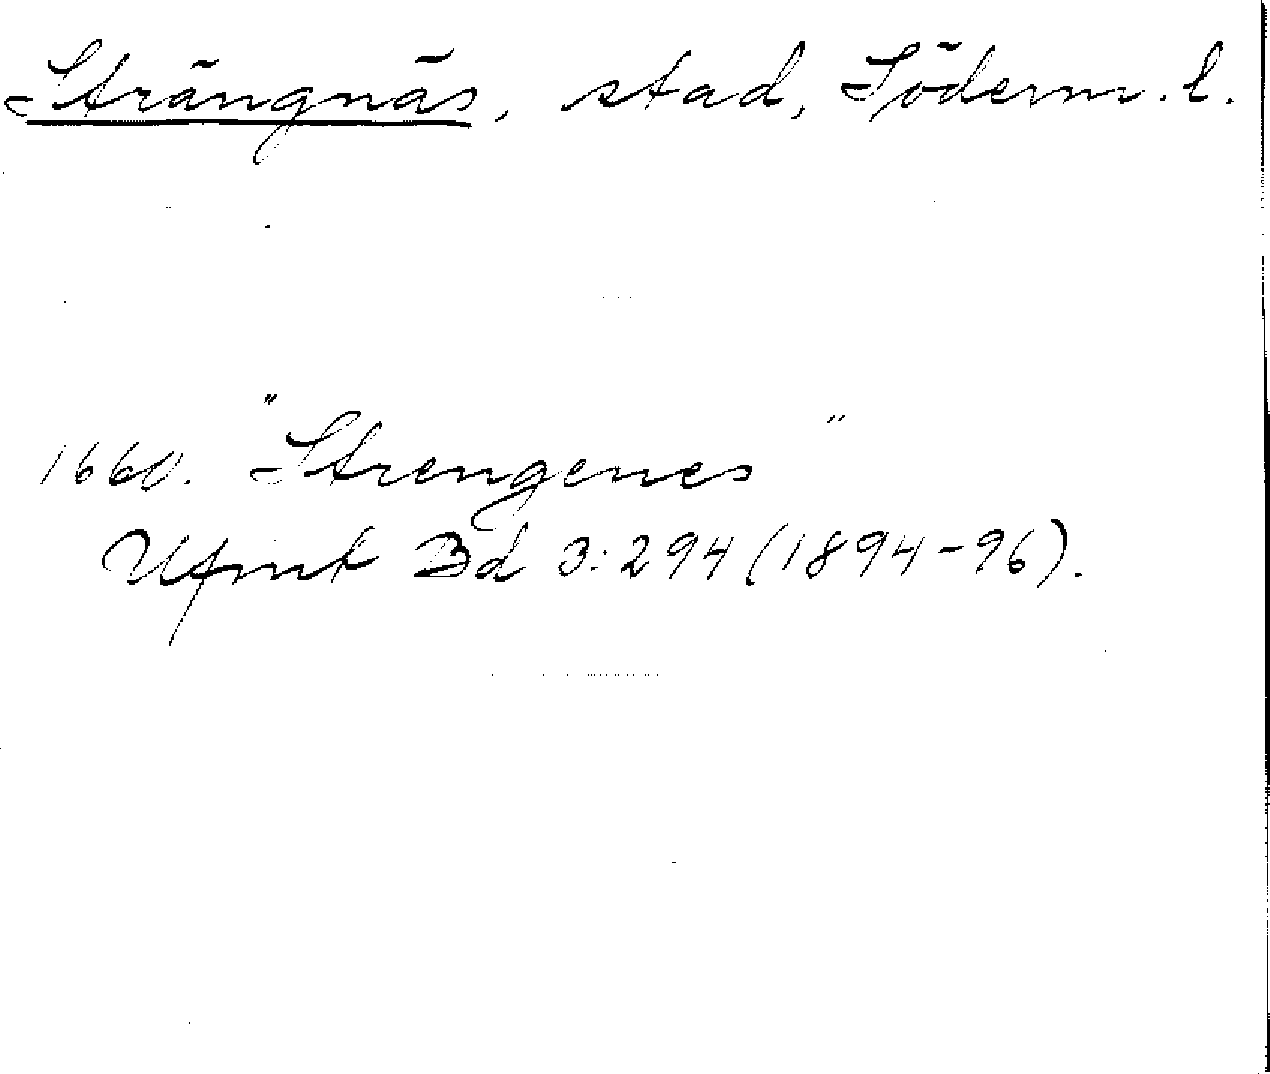 Strängnäs, stad, Söderm. l.
1660. "Strengenes"
Ufmt Bd 3:294 (1894-96).